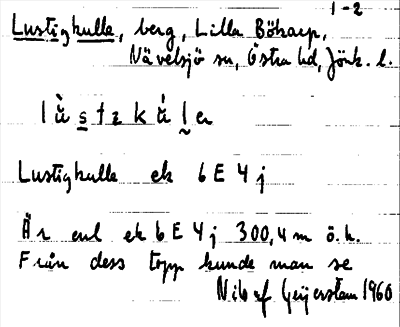 1-2
Lustigkulle, berg, Lilla Bökarp,
Nävelsjö sn, Östra hd, Jönk. l.
Lustigkulle ek 6 E 4 j
Är enl ek 6 E 4 j 300,4 m ö. h.
Från dess topp kunde man se
Nils af Geijerstam 1960